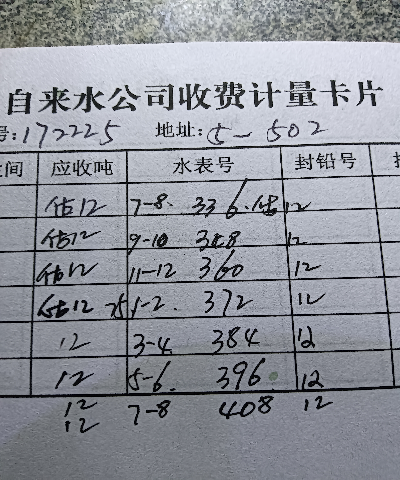 自来水公司收费计量卡片
号:172225 地址:5-502
间 应收吨 水表号 封铅号
估12 7-8. 336.估12
估12 9-10 348 12
估12 11-12 360 12
估12 25 1-2. 372 12
12 3-4 384 12
12 5-6. 396 12
12 7-8 408 12
12